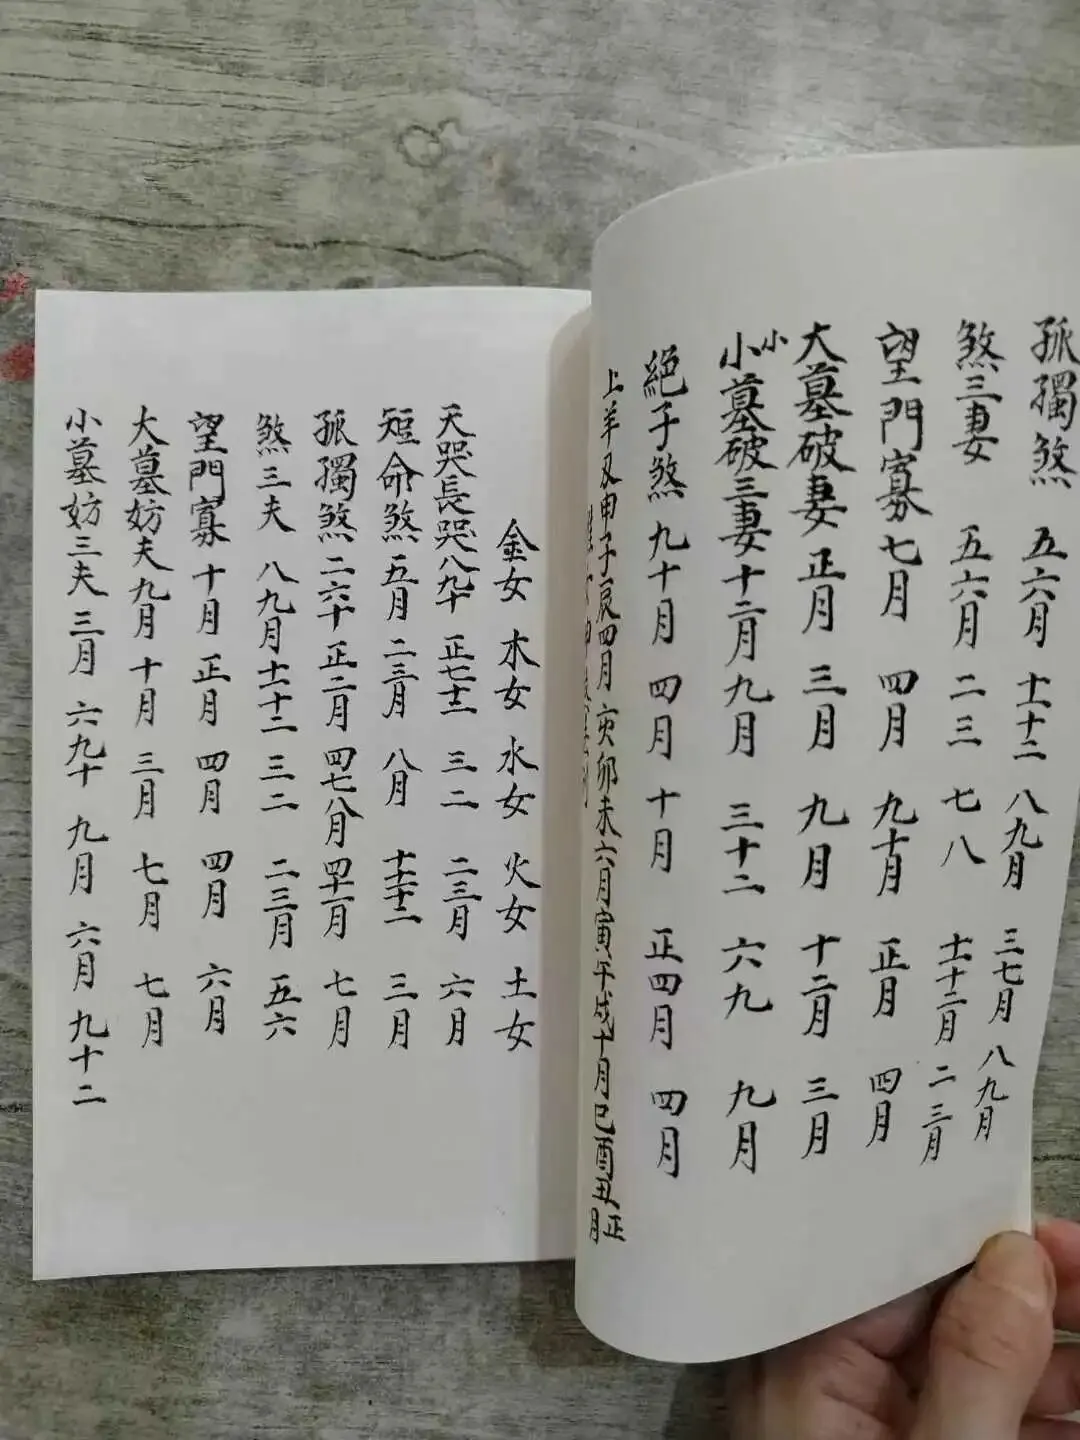 孤獨煞 五六月 十一十二 八九月 三七月 八九月
煞三妻 五六月 二三 七八 十一十二月 二三月
望門寡 七月 四月 九十月 正月 四月
大墓破妻 正月 三月 九月 十二月 三月
小小墓破三妻 十二月 九月 三十二 六九 九月
絕子煞 九十月 四月 十月 正四月 四月
上羊刃申子辰四月 亥卯未六月 寅午戌十月 巳酉丑正月
金女 木女 水女 火女 土女
天哭長哭 八九十 正七十二 三二 二三月 六月
短命煞 五月 二三月 八月 十一十二 三月
孤獨煞 二六十 正二月 四七八月 四十一月 七月
煞三夫 八九月 十一十二 三二 二三月 五六
望門寡 十月 正月 四月 四月 六月
大墓妨夫 九月 十月 三月 七月 七月
小墓妨三夫 三月 六九十 九月 六月 九十二